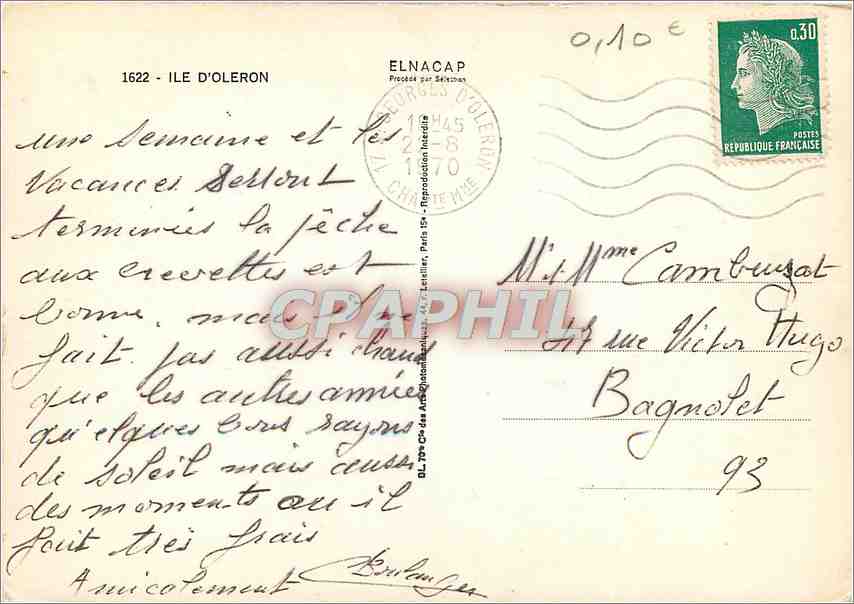 0,10 €
0.30
POSTES
REPUBLIQUE FRANÇAISE
1622 - ILE D'OLERON
ELNACAP
Procédé par Sélection
GEORGES D'OLERON
45
-8
1970
17 CHARTE MME
une semaine et les
vacances seront
terminées la pêche
aux crevettes est
bonne, mais il ne
fait pas aussi chaud
que les autres années
qu'elques bons rayons
de soleil mais aussi
des moments ou il
fait très frais
Amicalement Boulanger
M. et Mme Cambuzat
47 rue Victor Hugo
Bagnolet
93
DL. 70 - Cie des Arts Photomécaniques, 44, r. Letellier, Paris 15e - Reproduction Interdite
CPAPHIL